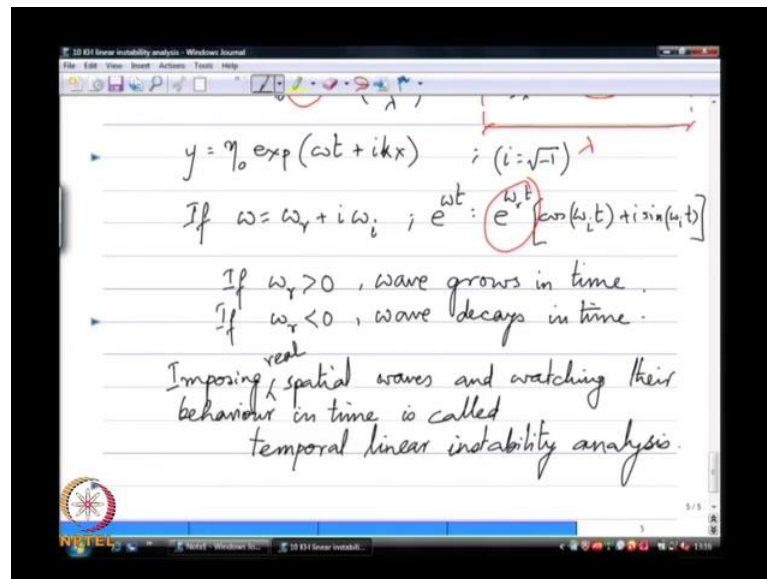 10 KH linear instability analysis - Windows Journal
File Edit View Insert Actions Tools Help
y = η₀ exp(ωt + ikx) ; (i = √-1) λ
If ω = ωᵣ + iωᵢ ; e^ωt : e^ωᵣt [cos(ωᵢt) + i sin(ωᵢt)]
If ωᵣ > 0 , wave grows in time.
If ωᵣ < 0 , wave decays in time.
real
Imposing spatial waves and watching their
behaviour in time is called
temporal linear instability analysis.
5/5
5
NPTEL
Note1 - Windows Jo... 10 KH linear instabili...